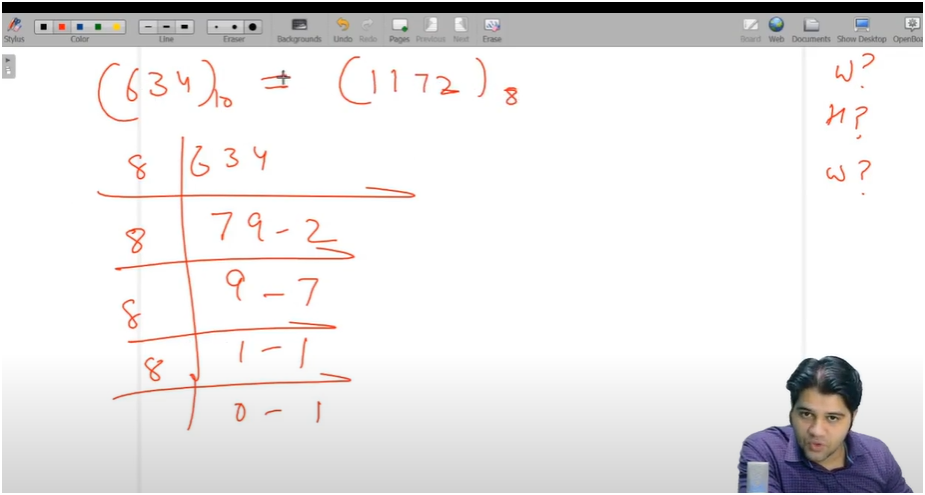 Stylus Color Line Eraser Backgrounds Undo Redo Pages Previous Next Erase Board Web Documents Show Desktop OpenBoa
(634)10 = (1172)8
W?
H?
W?
8 634
8 79 - 2
8 9 - 7
8 1 - 1
0 - 1